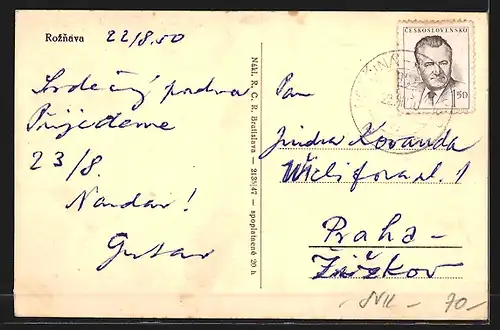 Rožňava 22/8.50
Srdečný pozdrav
Přijedeme
23/8.
Nazdar!
Gustav
Nákl. R. C. R. Bratislava — 2139/47 — spoplatnené 20 h
ČESKOSLOVENSKO
1.50
Pan
Jindra Kovanda
Viklifova ul. 1
Praha-
Žižkov
70-